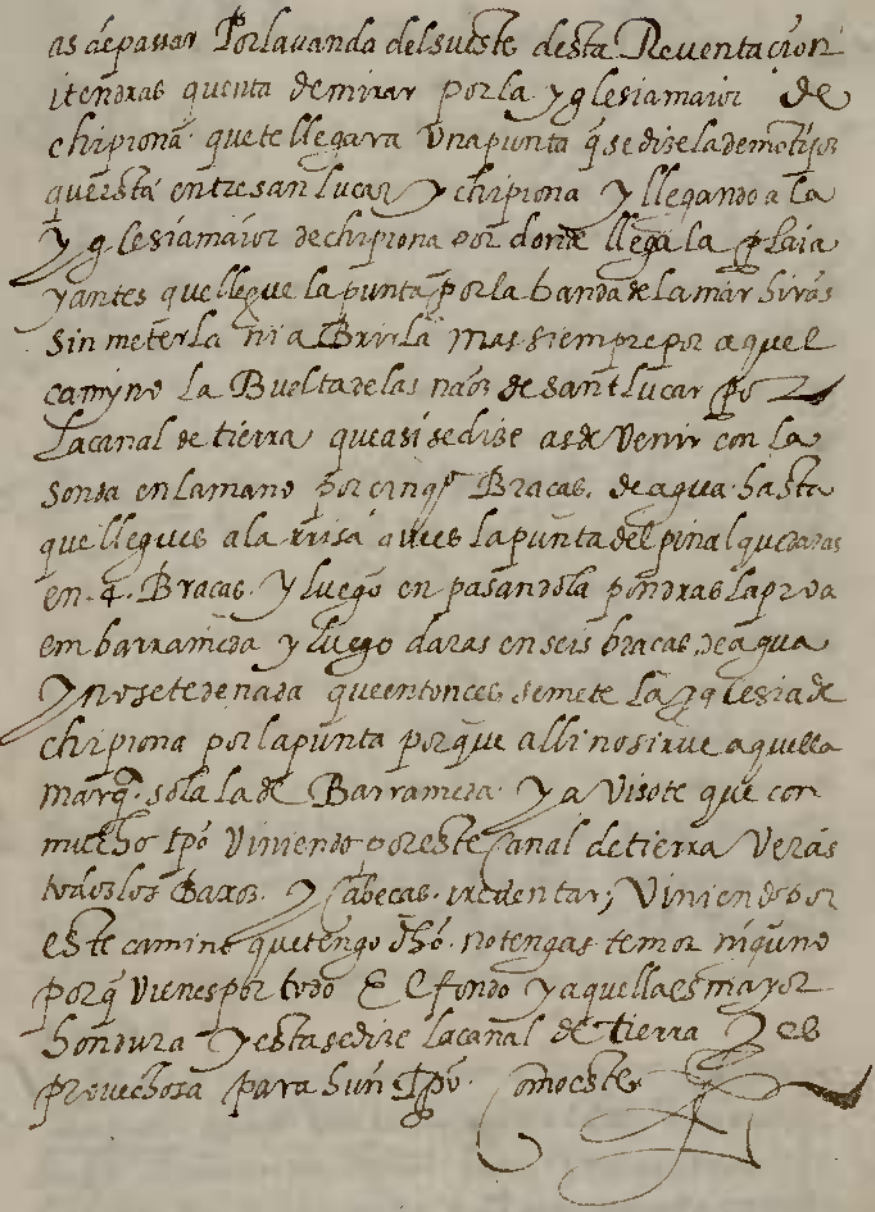 as depassar Porlavanda delsueste desta Reventacion
itendras quenta demirar porla yglesiamaior de
chipiona quetellegara Unapunta q̃ sedizelademotijos
queestá entresan lucar y chipiona y llegandoala
yglesiamaior dechipiona por donde llega la plaia
yantes quellegue lapunta porla bandadelamar hirás
sin meterla ni aBrirla mas siemprepor aquel
camyno la Bueltadelas naos desant lucar por
Lacanal detierra queasi sedize asde Venir con la
sonda enlamano por cinq̃ Bracas. deagua hasta
quellegues ala rrisa ques lapunta delpinal quedaras
en .4. Bracas. y luego en pasandola pondras laproa
embarrameda y luego daras enseis bracas deagua
ynosetedenada queentonces semete la yglesiade
chipiona porlapunta porque allinosirve aquella
marq̃. sola lade Barrameda. y avisote que con
mucho tpõ Viniendo poreste canal detierra Verás
todoslos Baxos. y cabecas. Viniendopor
este camino quetengo dhõ. notengas temor niguno
porq̃ Vienespor todo El fondo yaquellaesmayor
hondura yestasedize lacanal de tierra yes
provechosa para hun tpõ. comoeste